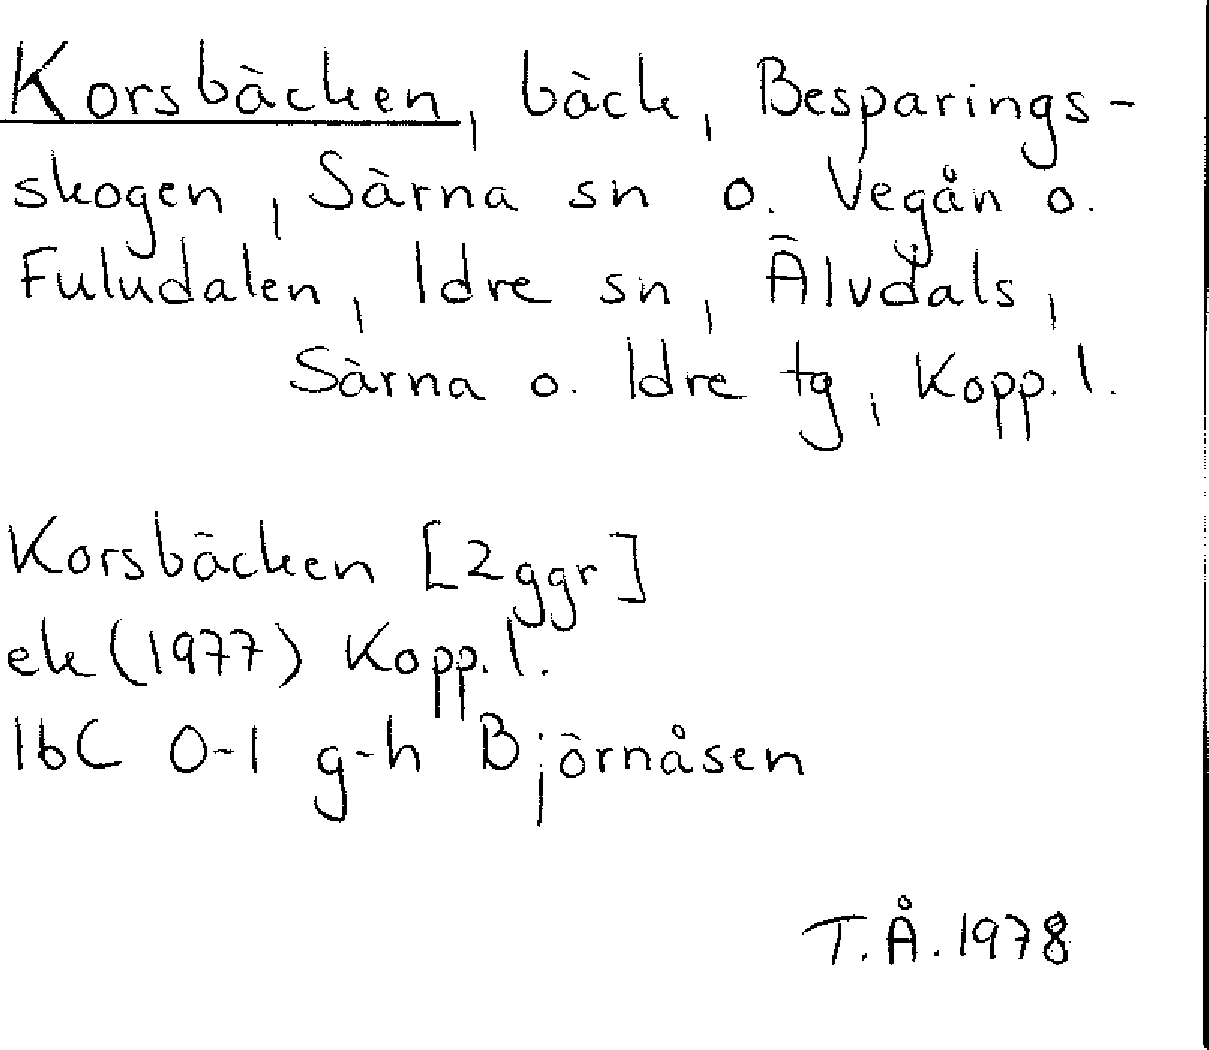 Korsbäcken, bäck, Besparings-
skogen, Särna sn o. Vegån o.
Fuludalen, Idre sn, Älvdals,
Särna o. Idre tg, Kopp. l.
Korsbäcken [2ggr]
ek (1977) Kopp. l.
16C 0-1 g-h Björnåsen
T.Å. 1978